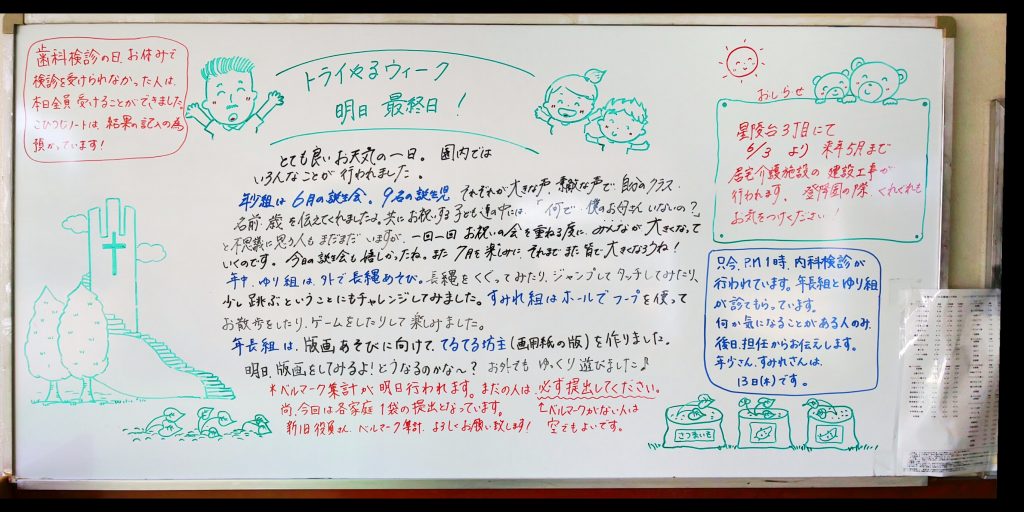 歯科検診の日、お休みで
検診を受けられなかった人は、
本日全員受けることができました。
こひつじノートは、結果の記入の為
預かっています!
トライやるウィーク
明日 最終日!
とても良いお天気の一日。園内では
いろんなことが行われました。
年少組は6月の誕生会。9名の誕生児 それぞれが大きな声、素敵な声で、自分のクラス・
名前・歳を伝えてくれましたよ。共にお祝いする子ども達の中には、「何で、僕のお母さんいないの?」
と不思議に思う人もまだまだいますが、一回一回お祝いの会を重ねる度に、みんなが大きくなって
いくのです。今日の誕生会も嬉しかったね。また7月を楽しみに それまでまた皆で大きくなろうね!
年中、ゆり組は、外で長縄あそび。長縄をくぐってみたり、ジャンプしてタッチしてみたり、
少し跳ぶということにもチャレンジしてみました。すみれ組はホールでフープを使って
お散歩をしたり、ゲームをしたりして楽しみました。
年長組は、版画あそびに向けて、てるてる坊主(画用紙の版)を作りました。
明日、版画をしてみるよ!どうなるのかな〜? お外でもゆっくり遊びました♪
*ベルマーク集計が明日行われます。まだの人は、必ず提出してください。
尚、今回は各家庭1袋の提出となっています。
↑ベルマークがない人は
空でもよいです。
新旧役員さん、ベルマーク集計、よろしくお願い致します!
おしらせ
星陵台3丁目にて
6/3 より 来年5月まで
居宅介護施設の建設工事が
行われます。登降園の際、くれぐれも
お気をつけください!
只今、P.M1時、内科検診が
行われています。年長組とゆり組
が診てもらっています。
何か気になることがある人のみ、
後日、担任からお伝えします。
年少さん、すみれさんは、
13日(木)です。
さつまいも